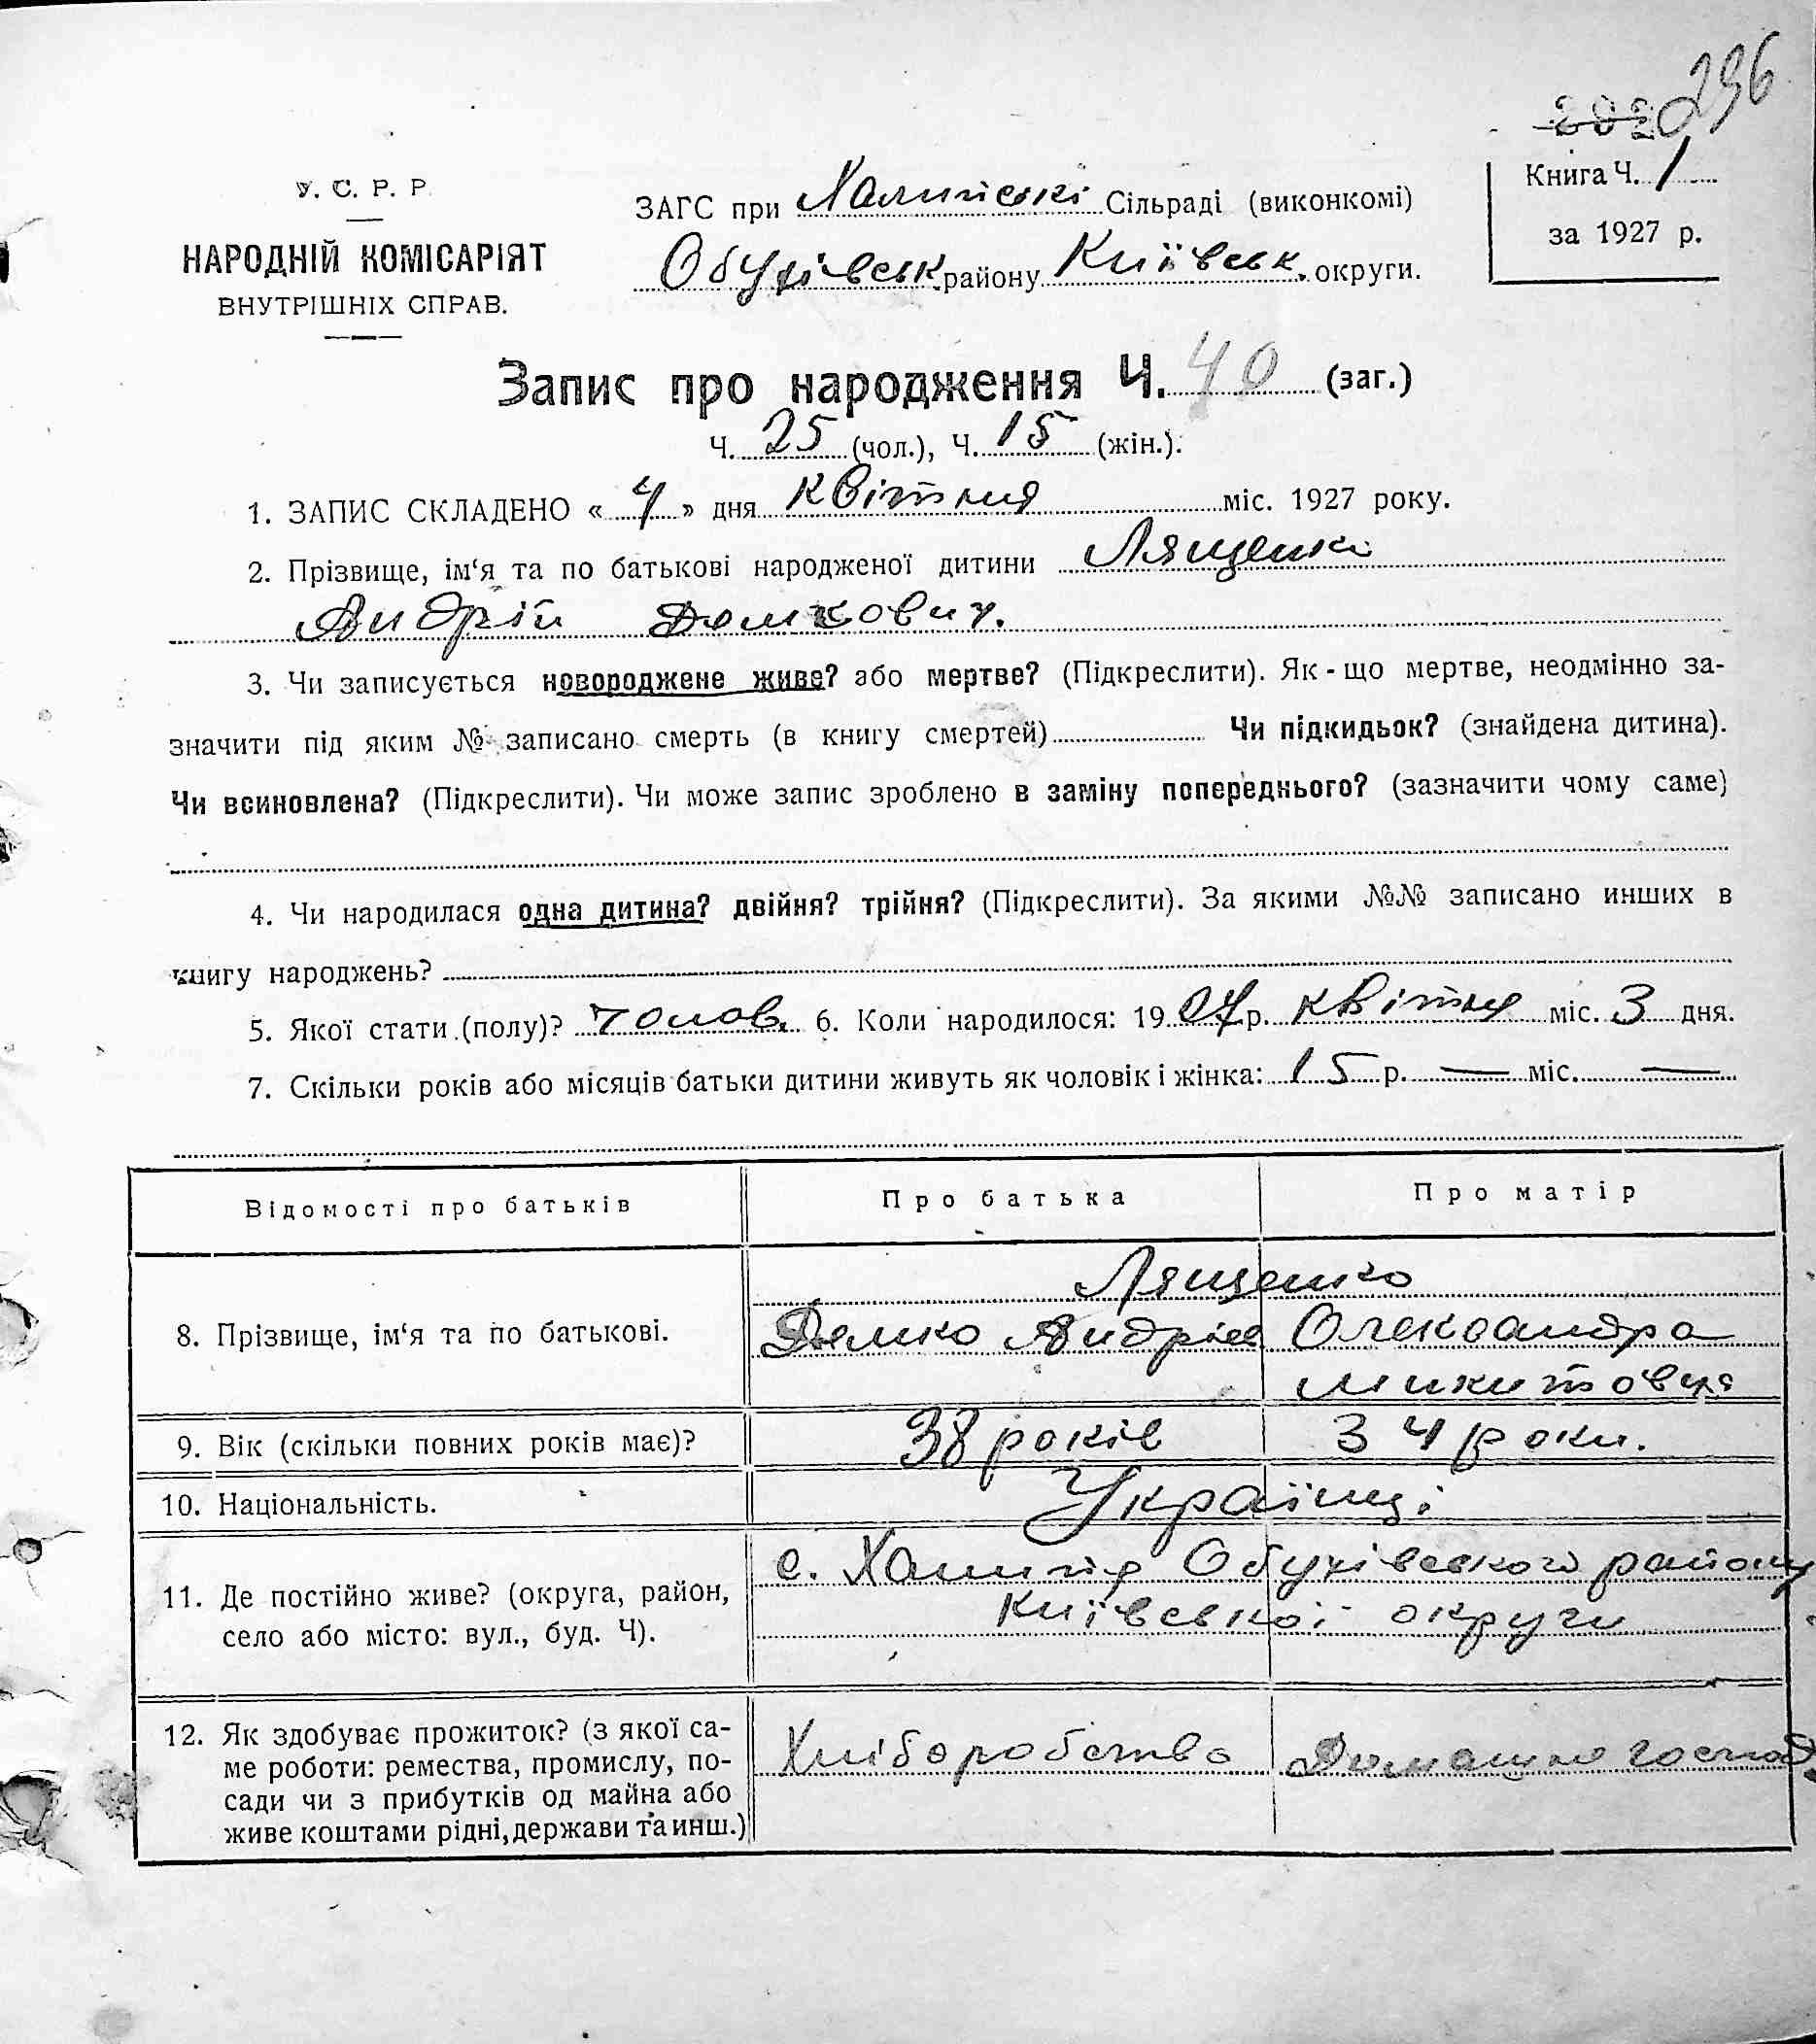 296
202
У. С. Р. Р.
НАРОДНІЙ КОМІСАРІЯТ
ВНУТРІШНІХ СПРАВ.
ЗАГС при Халипські Сільраді (виконкомі)
Обухівськ. району Київськ. округи.
Книга Ч. 1
за 1927 р.
Запис про народження Ч. 40 (заг.)
Ч. 25 (чол.), Ч. 15 (жін.).
1. ЗАПИС СКЛАДЕНО « 4 » дня квітня міс. 1927 року.
2. Прізвище, ім‘я та по батькові народженої дитини Лященко
Андрій Демкович.
3. Чи записується новороджене живе? або мертве? (Підкреслити). Як-що мертве, неодмінно за-
значити під яким № записано смерть (в книгу смертей) Чи підкидьок? (знайдена дитина).
Чи всиновлена? (Підкреслити). Чи може запис зроблено в заміну попереднього? (зазначити чому саме)
4. Чи народилася одна дитина? двійня? трійня? (Підкреслити). За якими №№ записано инших в
книгу народжень?
5. Якої стати (полу)? чолов. 6. Коли народилося: 1927 р. квітня міс. 3 дня.
7. Скільки років або місяців батьки дитини живуть як чоловік і жінка: 15 р. — міс. —
Відомості про батьків Про батька Про матір
Лященко
8. Прізвище, ім‘я та по батькові. Демко Андрієв Олександра
Микитовна
9. Вік (скільки повних років має)? 38 років 34 роки.
10. Національність. Українці
с. Халипля Обухівського району
11. Де постійно живе? (округа, район,
Київської округи
село або місто: вул., буд. Ч).
12. Як здобуває прожиток? (з якої са-
ме роботи: ремества, промислу, по-
Хліборобство Домашнє господ.
сади чи з прибутків од майна або
живе коштами рідні, держави та инш.)